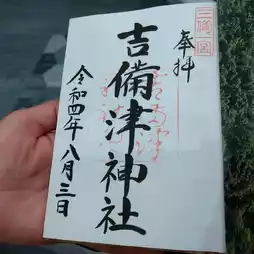 奉拝
三備一宮
吉備津神社
令和四年八月三日